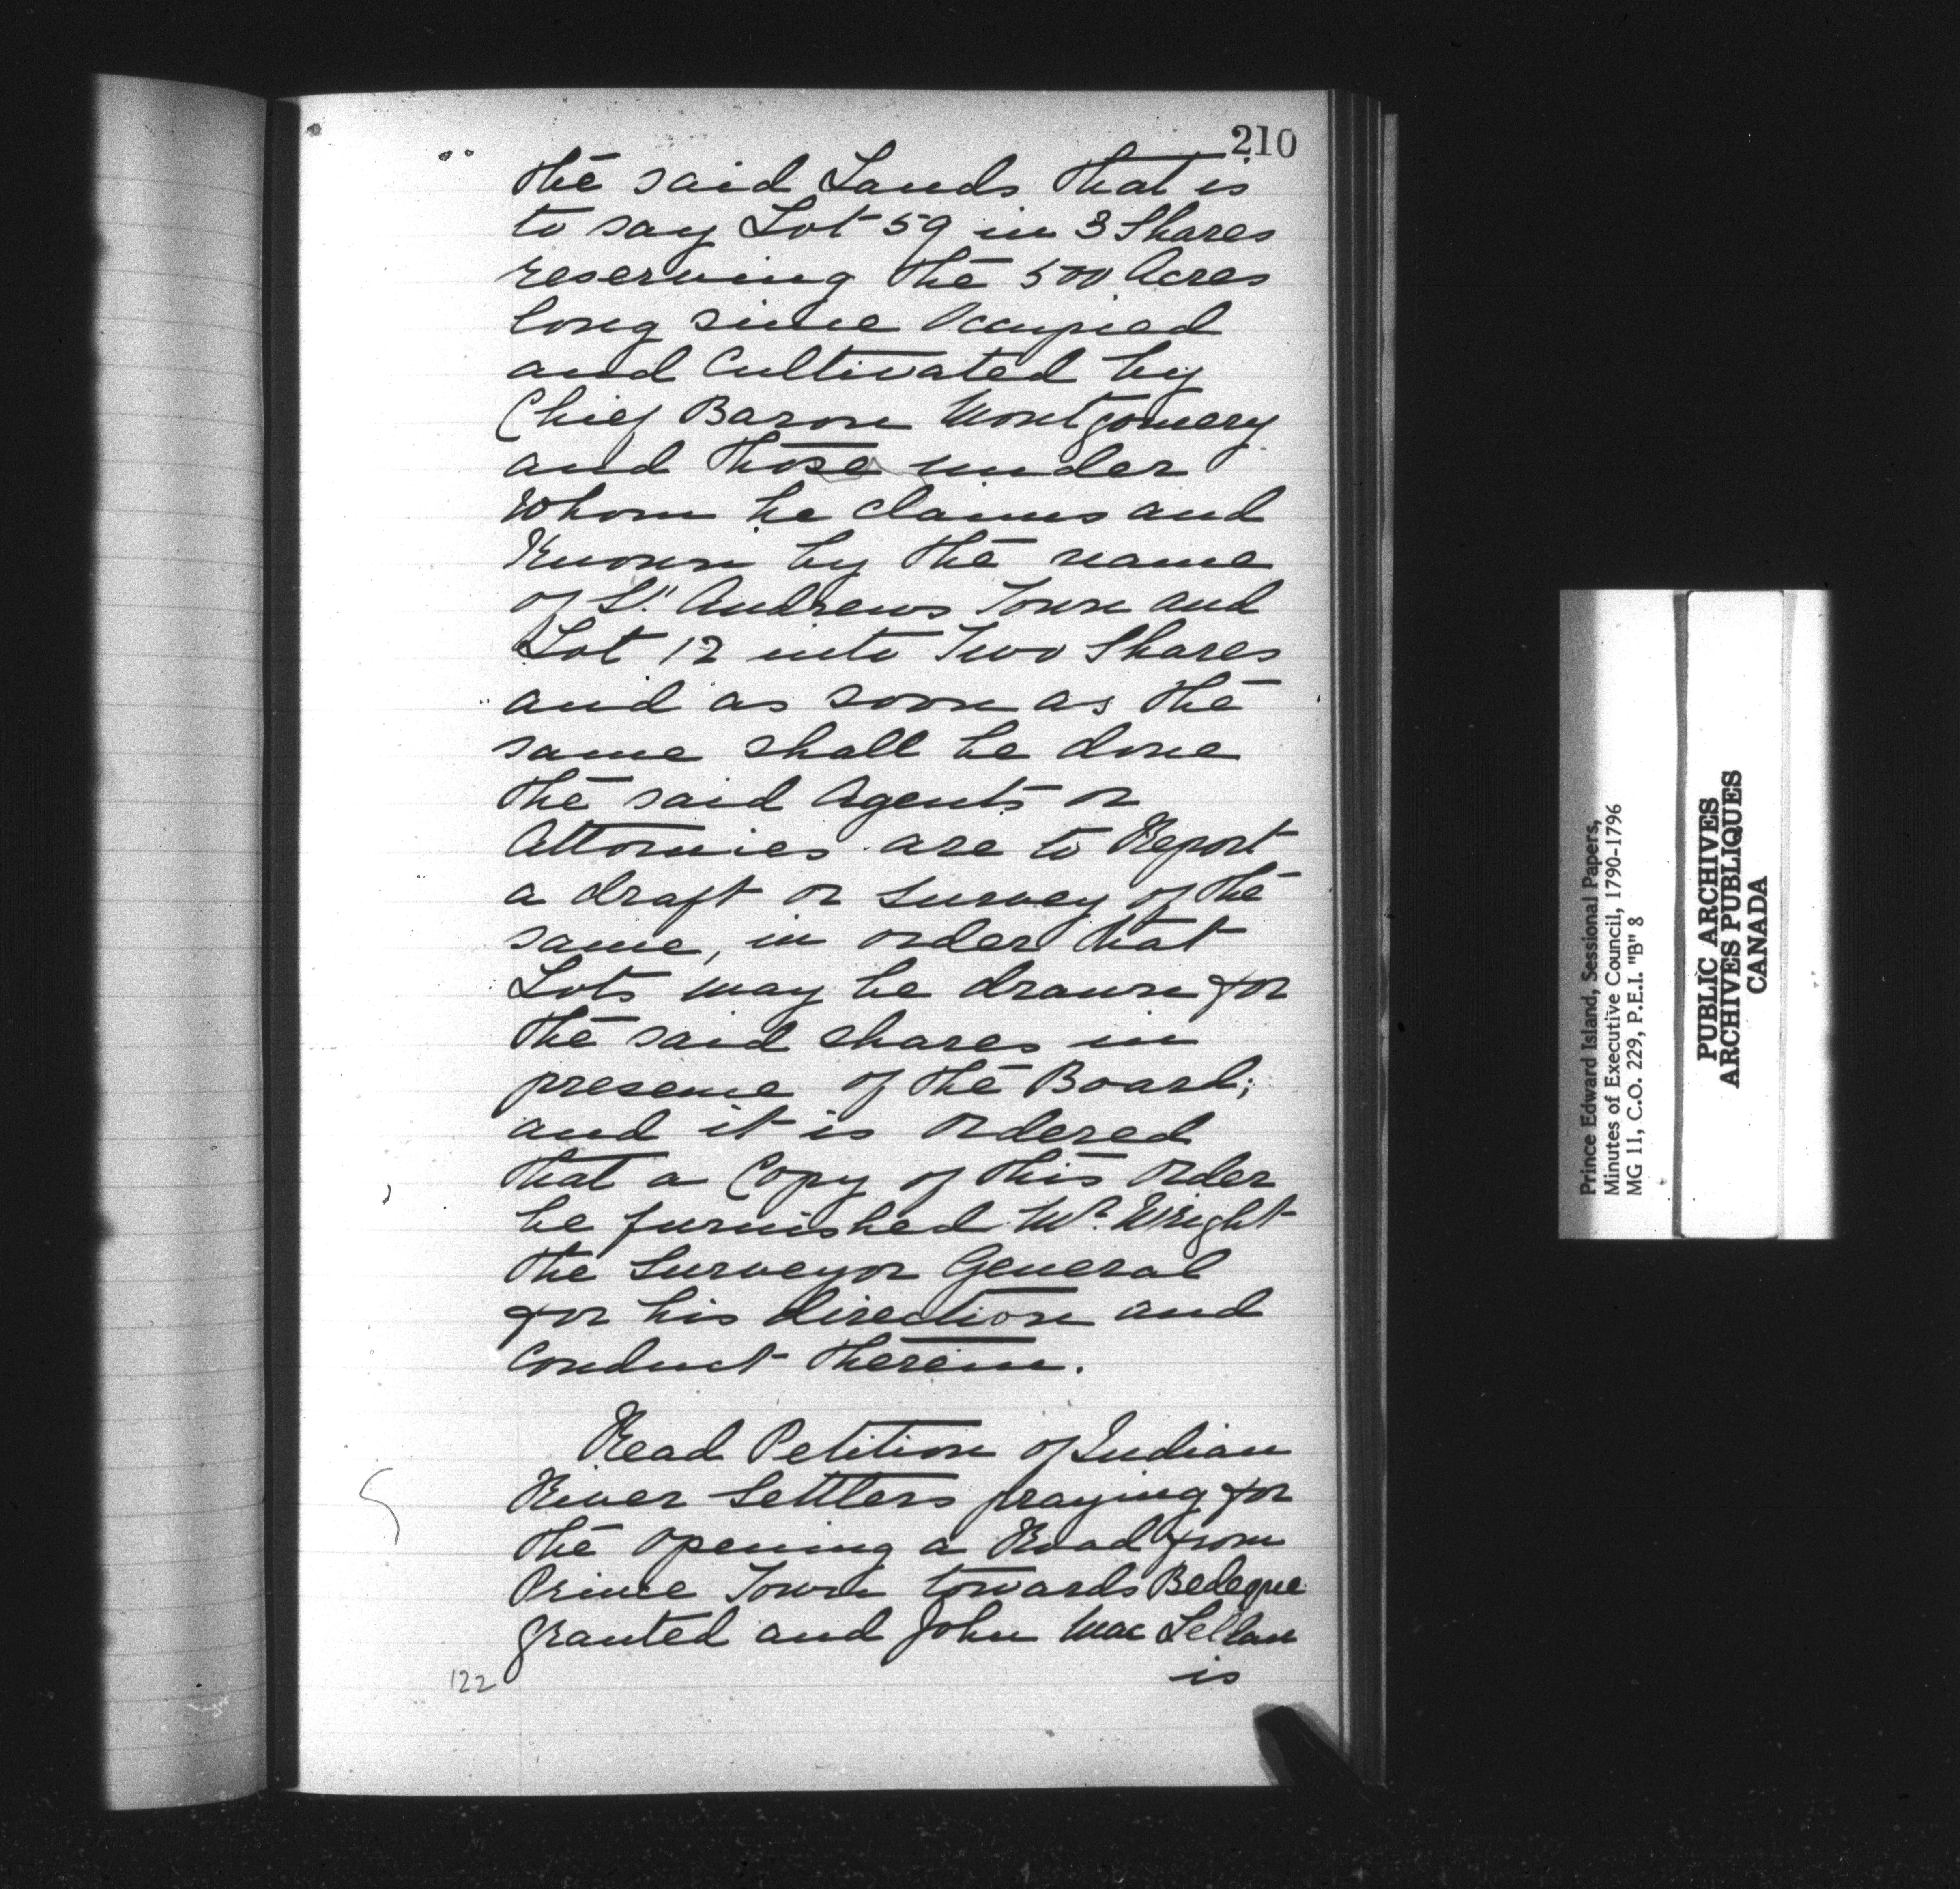 210
the said Lands that is
to say Lot 59 in 3 Shares
reserving the 500 Acres
long since Occupied
and Cultivated by
Chief Baron Montgomery
and those under
Whom he claims and
Known by the name
of St. Andrews Town and
Lot 12 into Two Shares
and as soon as the
same shall be done
the said Agents or
Attornies are to Report
a draft or survey of the
same, in order that
Lots may be drawn for
the said shares in
presence of the Board;
and it is Ordered
that a Copy of this Order
be furnished Mr. Wright
the Surveyor General
for his direction and
Conduct therein.
Read Petition of Indian
River Settlers praying for
the opening a Road from
Prince Town towards Bedeque
granted and John Mac Lellan
is
122
Prince Edward Island, Sessional Papers,
Minutes of Executive Council, 1790-1796
MG 11, C.O. 229, P.E.I. "B" 8
PUBLIC ARCHIVES
ARCHIVES PUBLIQUES
CANADA